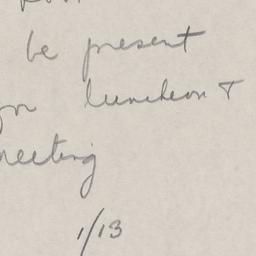 be present
luncheon &
meeting
1/13